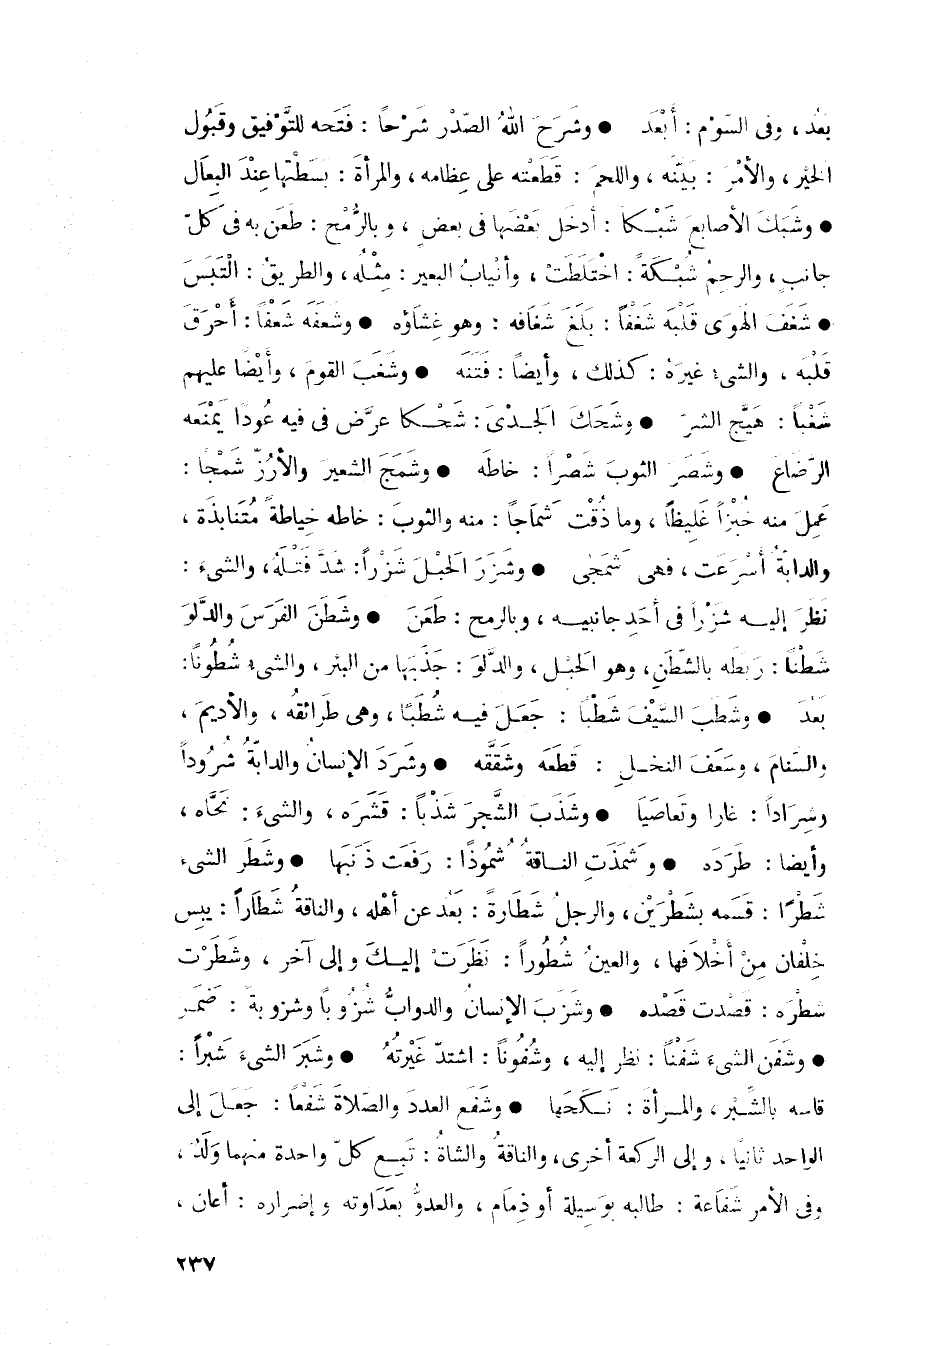 بَعُد ، وفى السَّوْم : أَبْعَدَ ● وشَرَحَ اللهُ الصّدْر شَرْحاً : فَتَحه للتَّوْفيق وقَبُول
الخَيْر ، والأمْرَ : بيَّنَه ، واللحمَ : قَطَعْته على عِظامه ، والمرأةَ : بَسَطْتها عِنْدَ البِعَال
● وشَبَكَ الأصابعَ شَبْكاً : أدخَل بَعْضَها فى بعضٍ ، وبالرُّمْح : طَعَن به فى كلّ
جانبٍ ، والرحِمُ شُبْكَةً : اخْتَلَطَتْ ، وأنْيابُ البعير : مِثْلُه ، والطريقُ : الْتَبَسَ
● شَغَفَ الهَوَى قَلْبَه شَغْفاً : بَلَغَ شَغَافه : وهو غِشَاؤه ● وشعَفَه شَعْفاً : أَحْرَقَ
قَلْبَه ، والشىءُ غيرَهُ : كذلك ، وأيضاً : فَتَنَه ● وشَغَبَ القومَ ، وأيْضا عليهم
شَغْباً : هَيَّج الشرّ ● وشَحَكَ الجَدْىَ : شَحْكا عرَّض فى فيه عُودًا يَمْنَعه
الرّضَاعَ ● وشَصَرَ الثوبَ شَصْراً : خاطَه ● وشَمَجَ الشعيرَ والأرُزّ شَمْجًا :
عَمِلَ منه خُبْزاً غَلِيظًا ، وما ذُقْت شَمَاجاً : منه والثوبَ : خاطه خِياطةً مُتَنابذَة ،
والدابةُ أَسْرَعَت ، فهى شَمَجَى ● وشَزَرَ الحَبْلَ شَزْراً : شدَّ فَتْلَهُ ، والشىءَ :
نَظَرَ إليه شَزْراً فى أحَدِ جانبيه ، وبالرمح : طَعَنَ ● وشَطَنَ الفَرَسَ والدَّلْوَ
شَطْنًا : رَبَطَه بالشَّطَنِ ، وهو الحَبْل ، والدَّلوَ : جَذَبَها من البئر ، والشىءُ شُطُونًا :
بَعُدَ ● وشَطَبَ السَّيْفَ شَطْبًا : جَعَلَ فيه شُطَبًا ، وهى طَرائقُه ، والأديمَ ،
والسَّنامَ ، وسَعَفَ النخلِ : قَطَعَه وشَقَّقَه ● وشَرَدَ الإنسانُ والدابّةُ شُرُوداً
وشِرَاداً : غارا وتَعاصَيَا ● وشَذَبَ الشَّجرَ شَذْباً : قَشَرَه ، والشىءَ : نَحَّاه ،
وأيضا : طَرَدَه ● وشَمَذَتِ الناقةُ شُمُوذًا : رَفَعَت ذَنَبَها ● وشَطَر الشىءَ
شَطْرًا : قسَمه بشَطْرَيْن ، والرجلُ شَطَارةً : بَعُد عن أهْله ، والناقةُ شَطَاراً : يبِس
خِلْفان مِنْ أَخْلاَفها ، والعينُ شُطُوراً : نَظَرَتْ إليكَ وإلى آخر ، وشَطَرْت
شطْرَه : قصَدت قَصْده ● وشَزَبَ الإنسانُ والدوابُّ شُزُوباً وشزوبة : ضَمَر
● وشَفَن الشىءَ شَفْنًا : نظر إليه ، وشُفُوناً : اشتدّ غَيْرتهُ ● وشَبَرَ الشىءَ شَبْراً :
قاسه بالشِّبْر ، والمرأةَ : نَكَحَها ● وشَفَع العددَ والصّلاةَ شَفْعاً : جَعَلَ إلى
الواحد ثانيًا ، وإلى الركعة أخرى ، والناقةُ والشاةُ : تَبِع كلّ واحدة منهما وَلَدٌ ،
وفى الأمر شَفَاعة : طالبه بوَسِيلة أو ذِمَام ، والعدوُّ بعَدَاوته وإضراره : أعان ،
٢٣٧